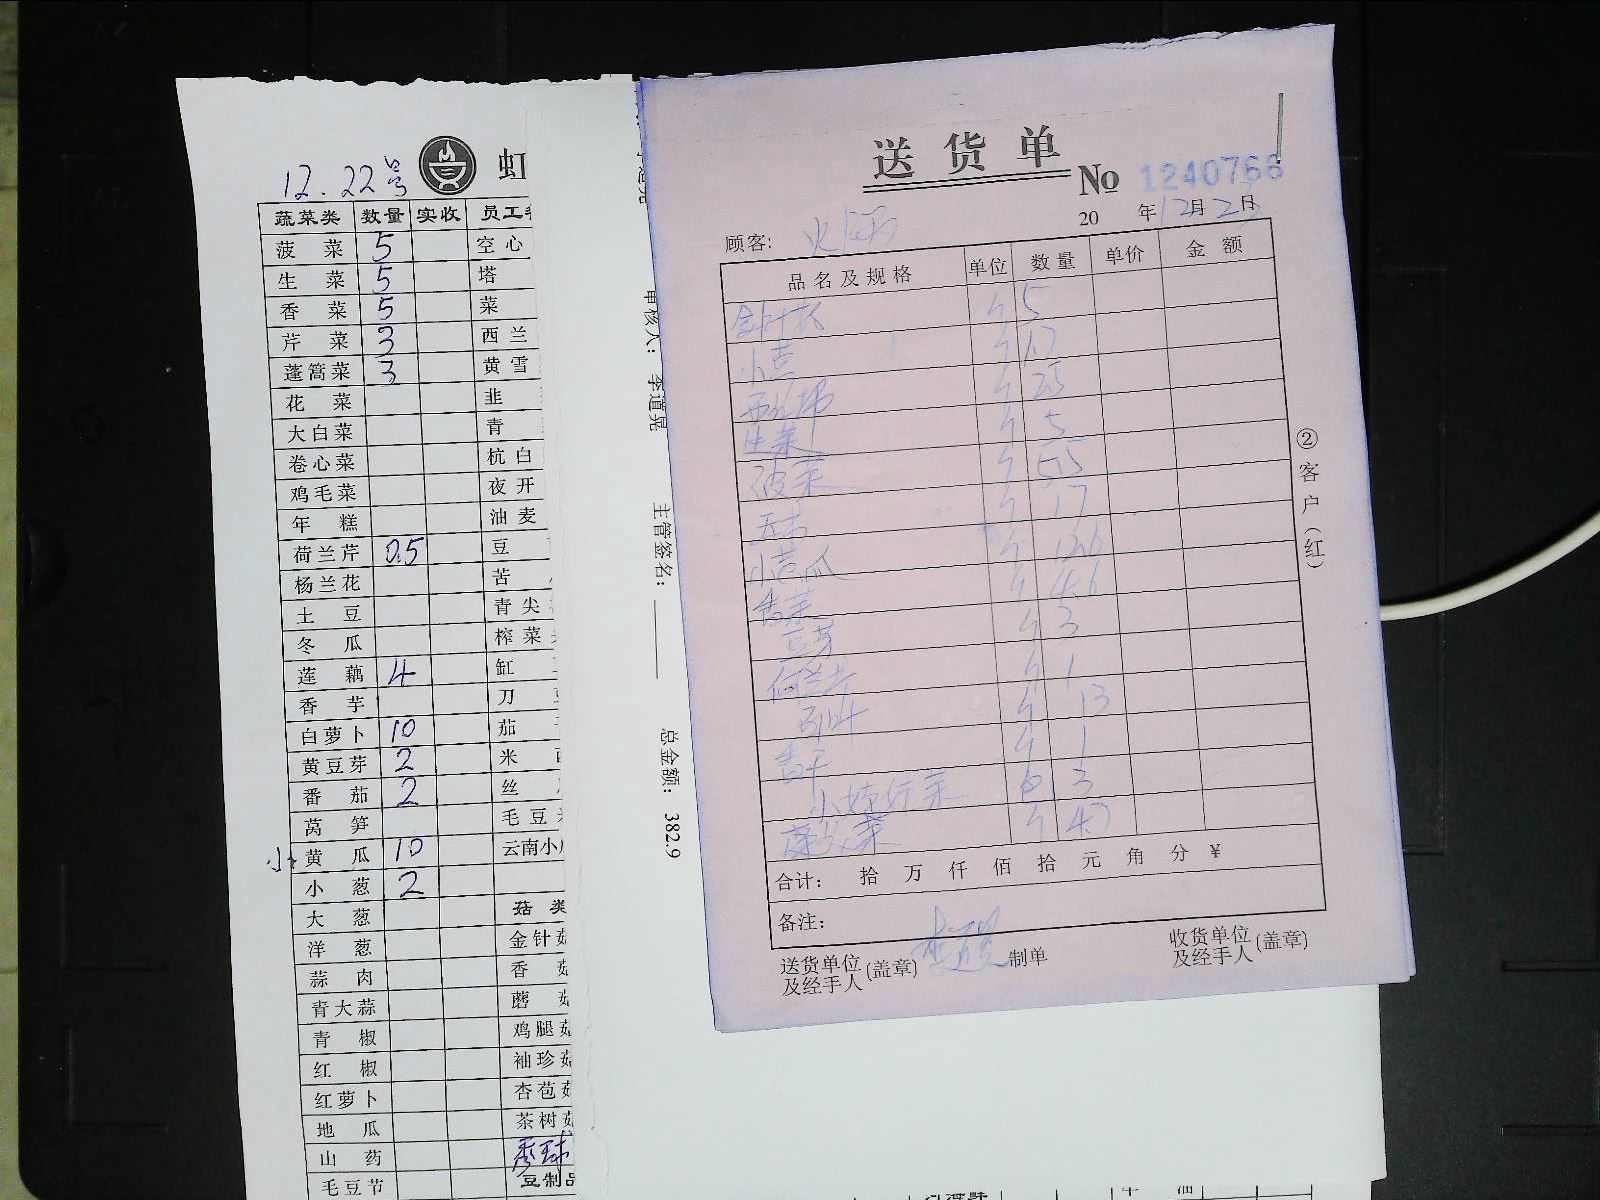 12.22号 虹
蔬菜类 数量 实收 员工
菠菜 5 空心
生菜 5 塔
香菜 5 菜
芹菜 3 西兰
蓬蒿菜 3 黄雪
花菜 韭
大白菜 青
卷心菜 杭白
鸡毛菜 夜开
年糕 油麦
荷兰芹 0.5 豆
杨兰花 苦
土豆 青尖
冬瓜 榨菜
莲藕 4 缸
香芋 刀
白萝卜 10 茄
黄豆芽 2 米
番茄 2 丝
莴笋 毛豆
小 黄瓜 10 云南小
小葱 2
大葱 菇类
洋葱 金针菇
蒜肉 香菇
青大蒜 蘑菇
青椒 鸡腿菇
红椒 袖珍菇
红萝卜 杏苞菇
地瓜 茶树菇
山药
毛豆节 豆制品
审核人: 李道晃
主管签名:
总金额: 382.9
送货单
No 1240766
20 年12月2日
顾客:
品名及规格 单位 数量 单价 金额
金针菇 斤 5
小吉 斤 17
斤 25
生菜 斤 5
菠菜 斤 5.5
斤 17
小黄瓜 斤
香菜 斤 4.6
豆芽 斤 3
荷兰芹 斤 1
斤 13
香干 斤 1
3
斤 4.7
合计: 拾 万 仟 佰 拾 元 角 分 ¥
备注:
送货单位及经手人(盖章) 制单 收货单位及经手人(盖章)
②客户(红)